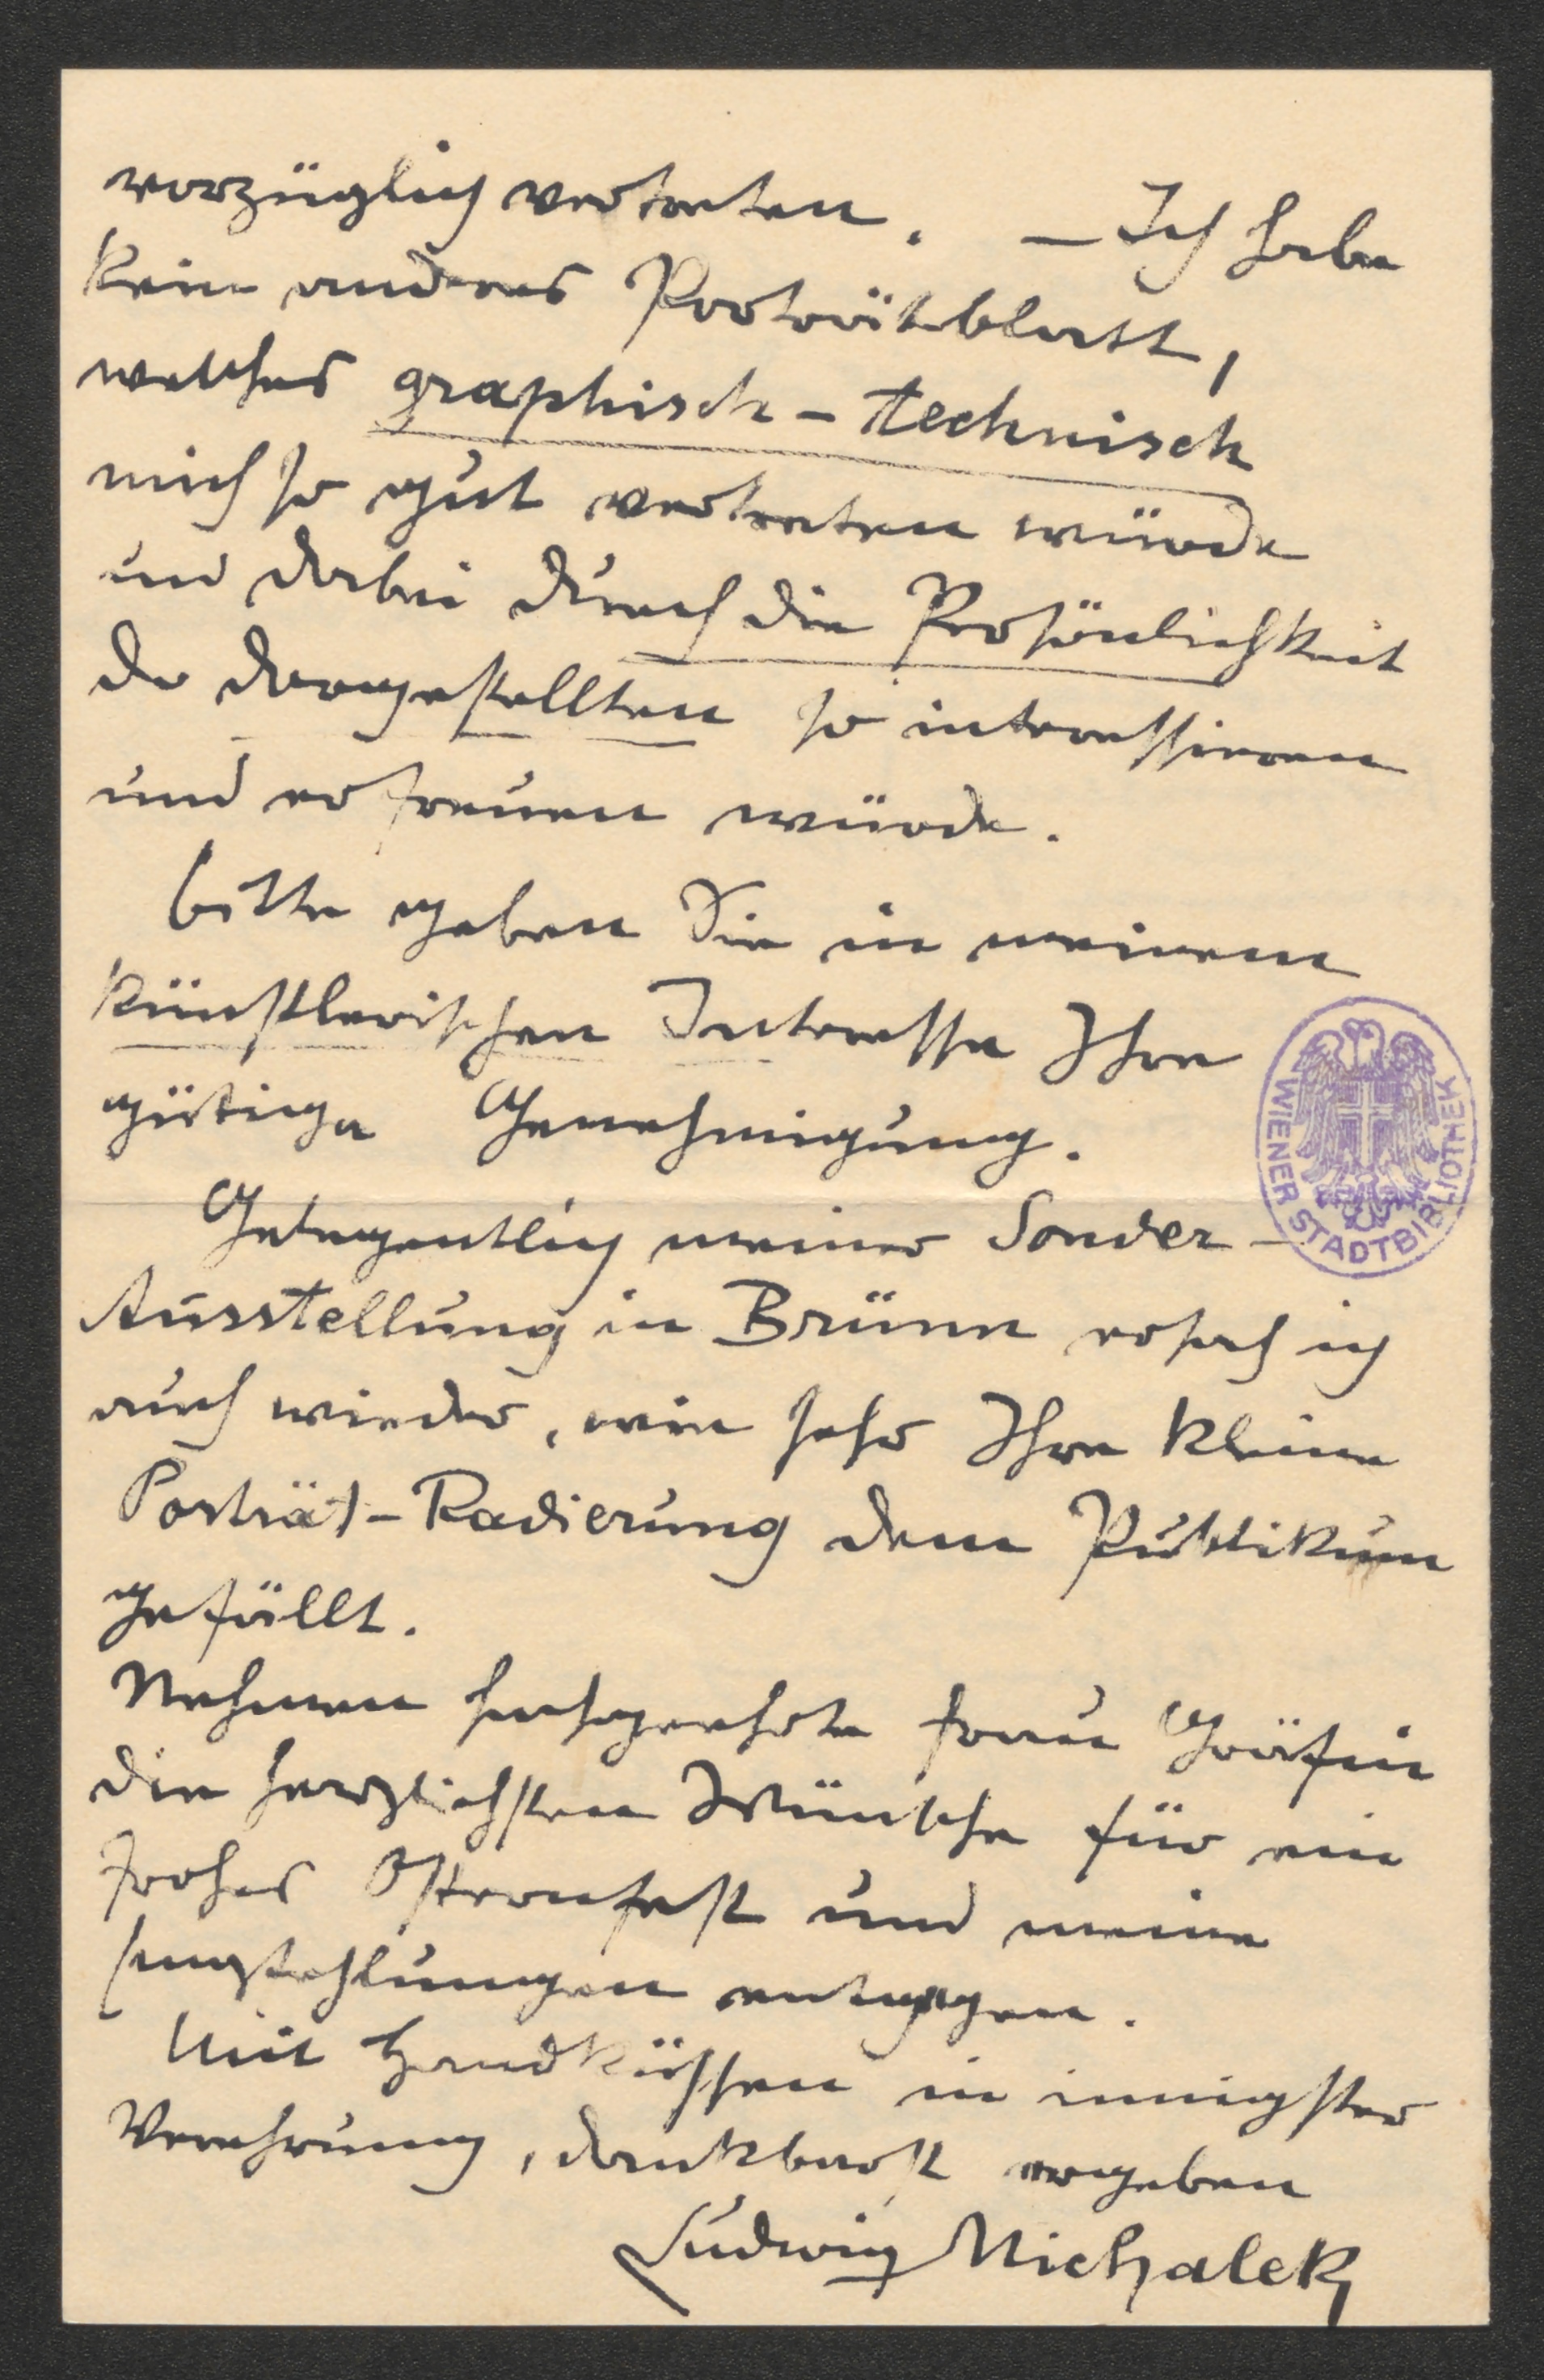 vorzüglich vertreten. – Ich habe
kein anderes Porträtblatt,
welches graphisch-technisch
mich so gut vertreten würde
und dabei durch die Persönlichkeit
der dargestellten so interessieren
und erfreuen würde.
Bitte geben Sie in meinem
künstlerischen Interesse Ihre
gütige Genehmigung.
Gelegentlich meiner Sonder-
Ausstellung in Brünn ersah ich
auch wieder, wie sehr Ihre kleine
Porträt-Radierung dem Publikum
gefällt.
Nehmen hochgeehrte Frau Gräfin
die herzlichsten Wünsche für ein
frohes Osternfest und meine
Empfehlungen entgegen.
Mit Handküssen in innigster
Verehrung, dankbarst ergeben
Ludwig Michalek
WIENER STADTBIBLIOTHEK